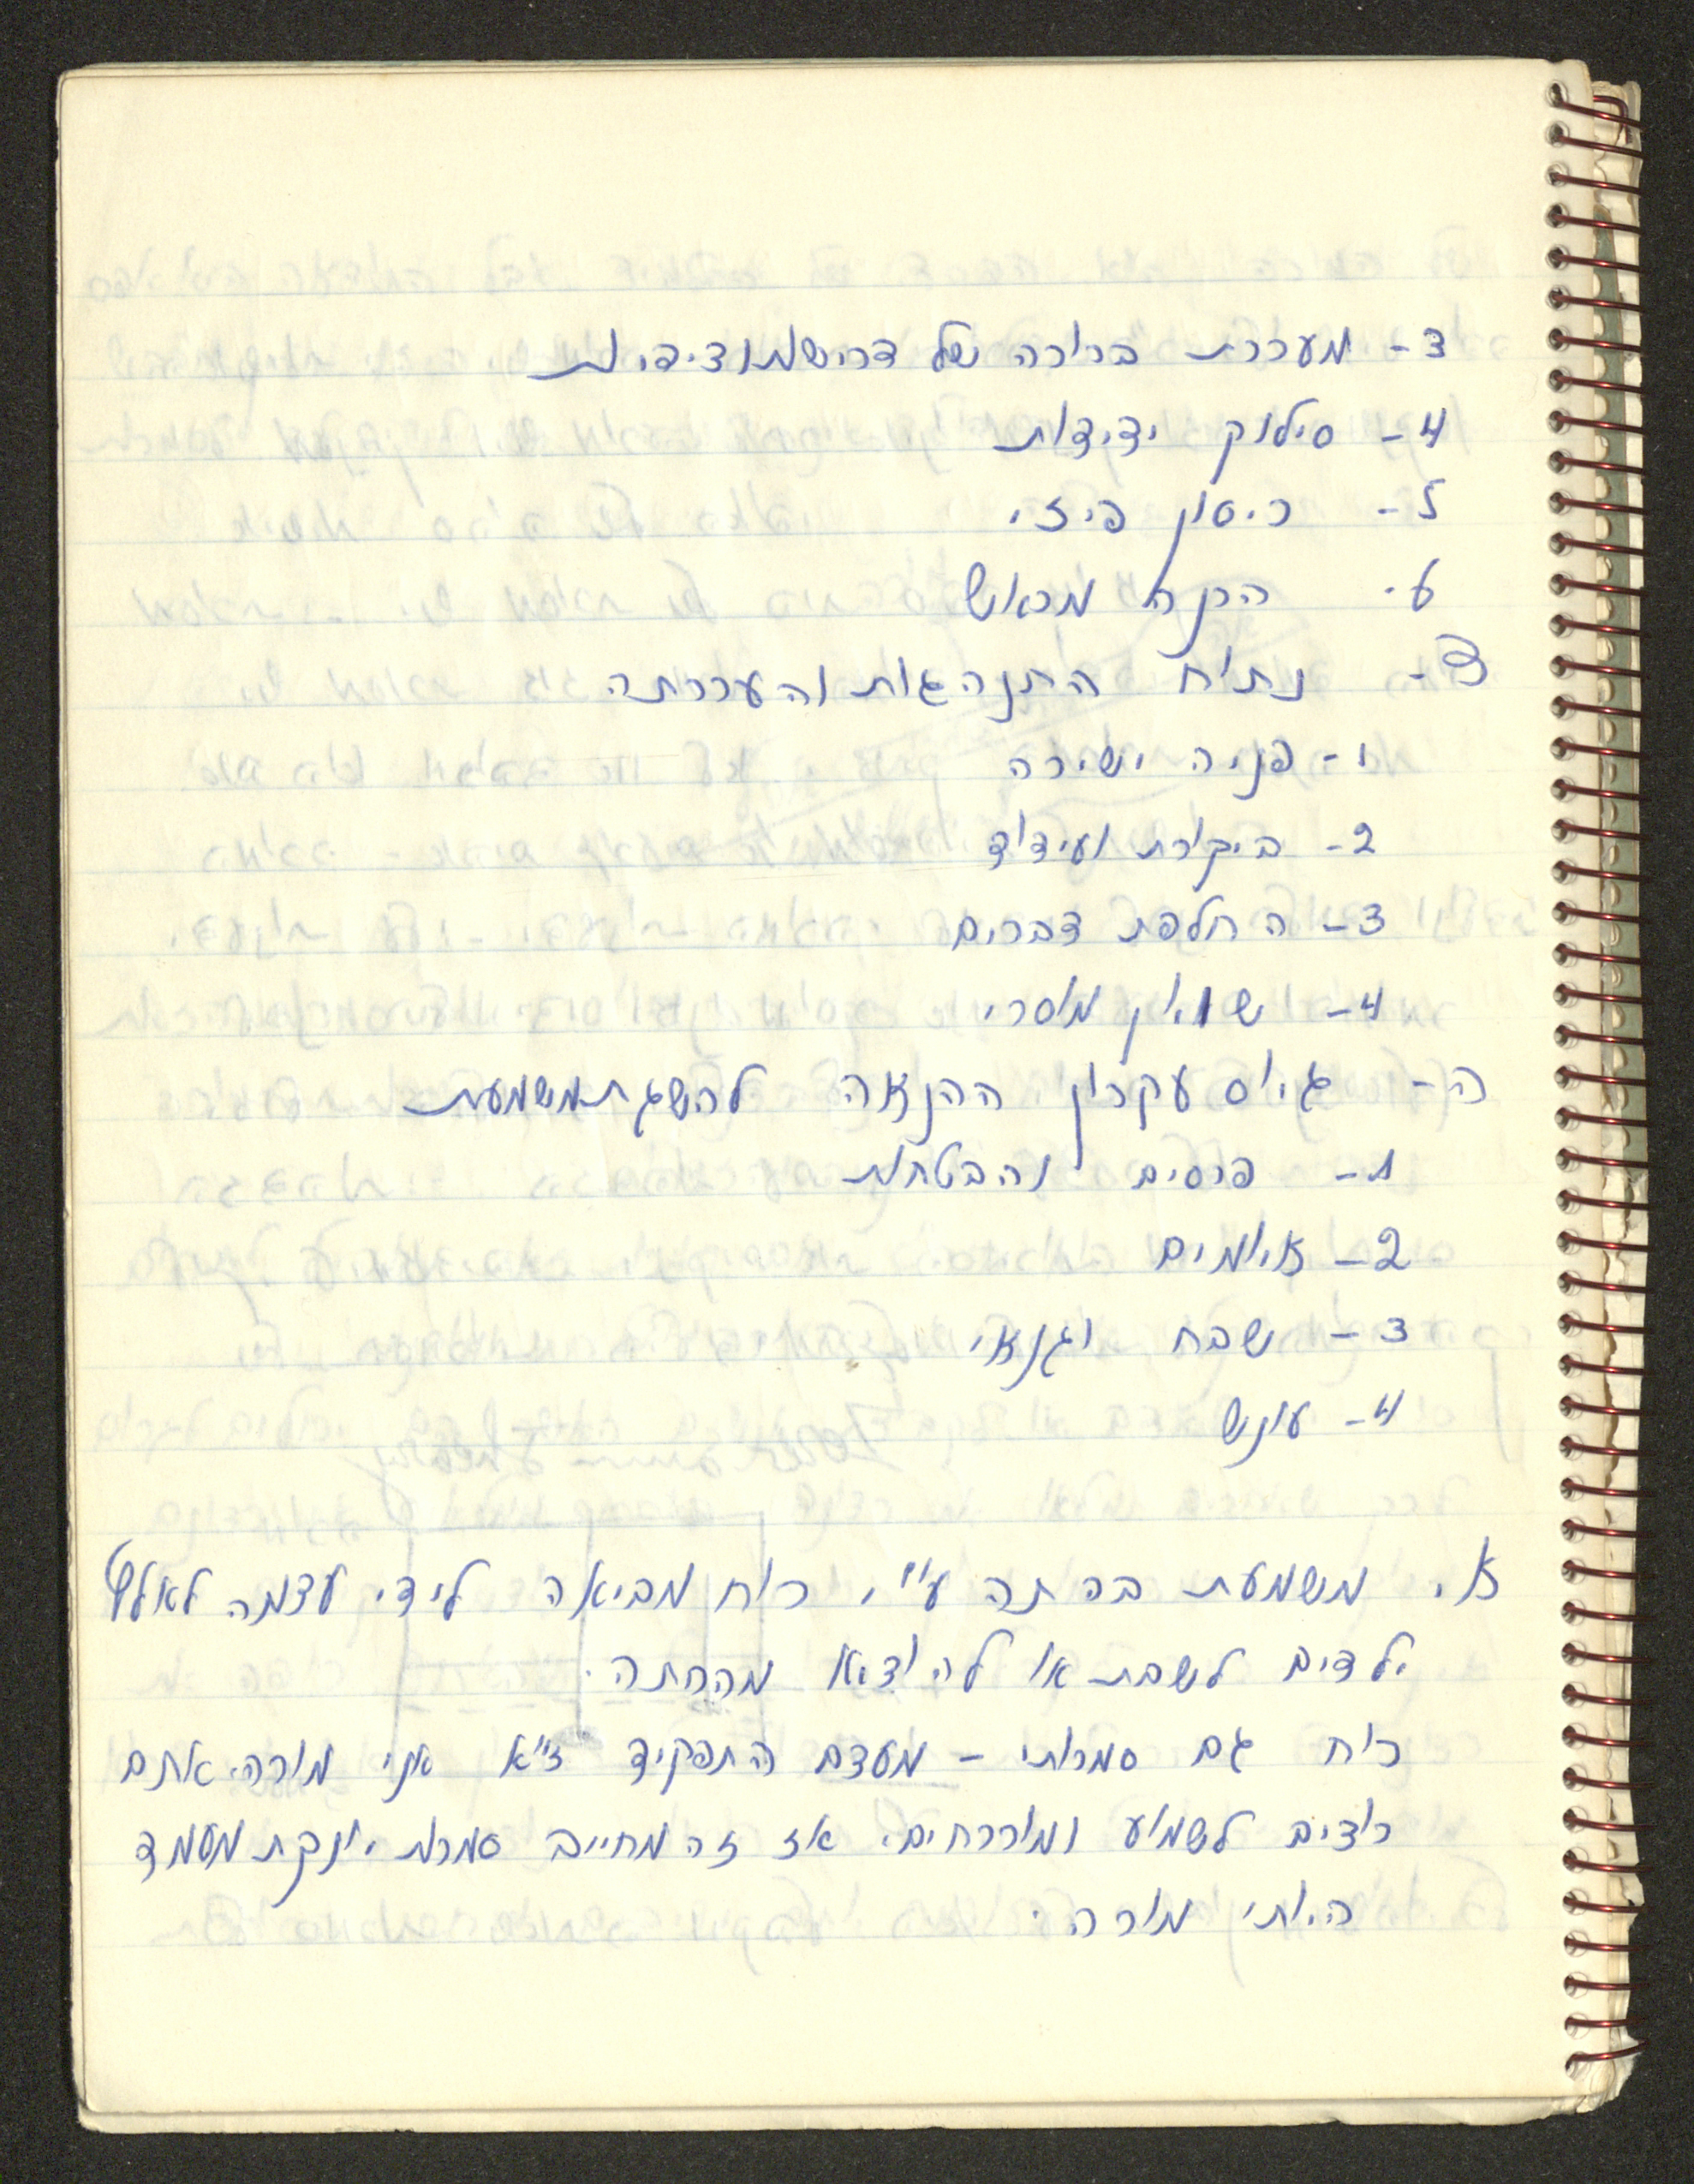 3- מערכת ברורה של דרישות וציפיות
4- סילוק ידידות
5- ריסון פיזי
6. הכנה מראש
ד- נתוח התנהגות והערכתה
1- פניה ישירה
2- ביקורת ועידוד
3- החלפת דברים
4- שוויון מוסרי
ה- גיוס עקרון ההנאה להשגת משמעת
1- פרסים והבטחות
2- איומים
3- שבח וגנאי
4- עונש
א. משמעת בכתה ע"י כוח מביאה לידי עצמה לאלץ
ילדים לשבת או להוציא מהכתה.
כוח גם סמכותי - מעצם התפקיד ז"א אני מורה. אתם
רוצים לשמוע ומוכרחים. אז זה מחייב סמכות יונקת מעמד
היותי מורה.